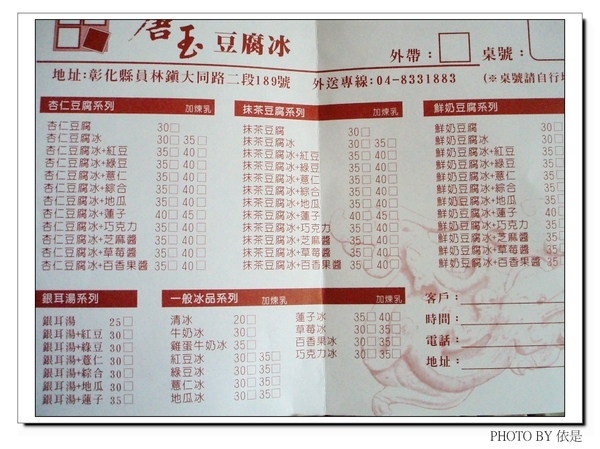 唐玉 豆腐冰
外帶： 桌號：
地址：彰化縣員林鎮大同路二段189號 外送專線：04-8331883 (※桌號請自行填
杏仁豆腐系列 加煉乳
杏仁豆腐 30□
杏仁豆腐冰 30□ 35□
杏仁豆腐冰+紅豆 35□ 40□
杏仁豆腐冰+綠豆 35□ 40□
杏仁豆腐冰+薏仁 35□ 40□
杏仁豆腐冰+綜合 35□ 40□
杏仁豆腐冰+地瓜 35□ 40□
杏仁豆腐冰+蓮子 40□ 45□
杏仁豆腐冰+巧克力 35□ 40□
杏仁豆腐冰+芝麻醬 35□ 40□
杏仁豆腐冰+草莓醬 35□ 40□
杏仁豆腐冰+百香果醬 35□ 40□
抹茶豆腐系列 加煉乳
抹茶豆腐 30□
抹茶豆腐冰 30□ 35□
抹茶豆腐冰+紅豆 35□ 40□
抹茶豆腐冰+綠豆 35□ 40□
抹茶豆腐冰+薏仁 35□ 40□
抹茶豆腐冰+綜合 35□ 40□
抹茶豆腐冰+地瓜 35□ 40□
抹茶豆腐冰+蓮子 40□ 45□
抹茶豆腐冰+巧克力 35□ 40□
抹茶豆腐冰+芝麻醬 35□ 40□
抹茶豆腐冰+草莓醬 35□ 40□
抹茶豆腐冰+百香果醬 35□ 40□
鮮奶豆腐系列
鮮奶豆腐 30□
鮮奶豆腐冰 30□
鮮奶豆腐冰+紅豆 35□
鮮奶豆腐冰+綠豆 35□
鮮奶豆腐冰+薏仁 35□
鮮奶豆腐冰+綜合 35□
鮮奶豆腐冰+地瓜 35□
鮮奶豆腐冰+蓮子 40□
鮮奶豆腐冰+巧克力 35□
鮮奶豆腐冰+芝麻醬 35□
鮮奶豆腐冰+草莓醬 35□
鮮奶豆腐冰+百香果醬 35
銀耳湯系列
銀耳湯 25□
銀耳湯+紅豆 30□
銀耳湯+綠豆 30□
銀耳湯+薏仁 30□
銀耳湯+綜合 30□
銀耳湯+地瓜 30□
銀耳湯+蓮子 35□
一般冰品系列 加煉乳 加煉乳
清冰 20□
牛奶冰 30□
雞蛋牛奶冰 35□
紅豆冰 30□ 35□
綠豆冰 30□ 35□
薏仁冰 30□ 35□
地瓜冰 30□ 35□
蓮子冰 35□ 40□
草莓冰 30□ 35□
百香果冰 30□ 35□
巧克力冰 30□ 35□
客戶：
時間：
電話：
地址：
PHOTO BY 依是